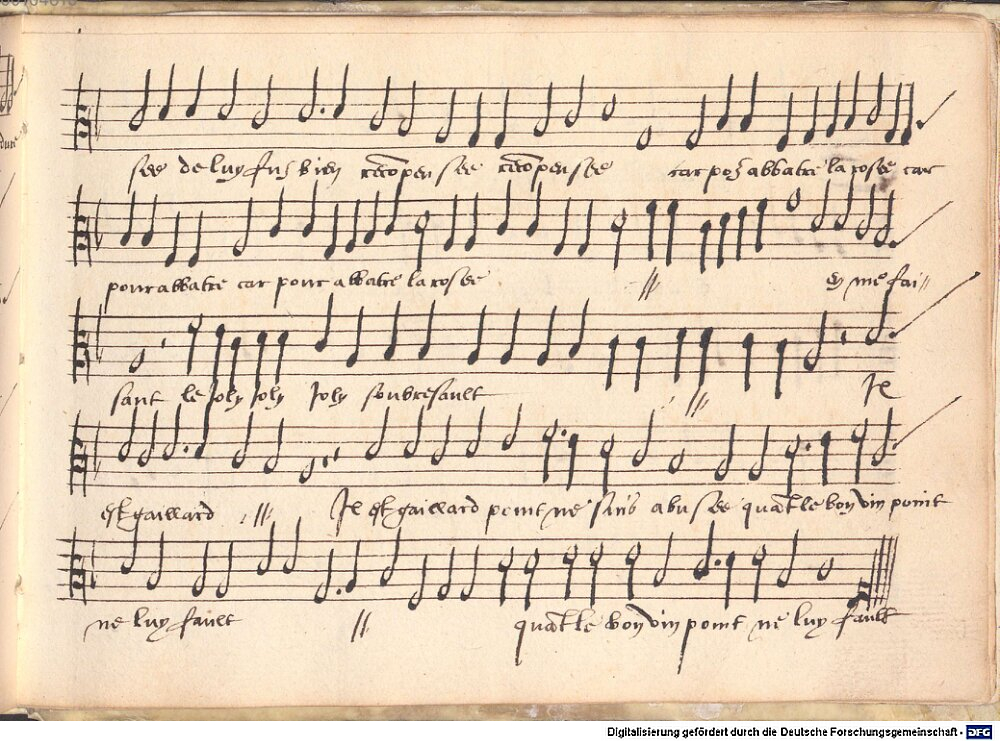 see de luy fus bien recõpensee recõpensee car por abbatre la rosee car
pour abbatre car pour abbatre la rosee // en me fai//
sant le joly joly joly soubresault // Il
est gaillard // Il est gaillard point ne suis abusee quãt le bon vin point
ne luy fault // quãt le bon vin point ne luy fault
Digitalisierung gefördert durch die Deutsche Forschungsgemeinschaft - DFG